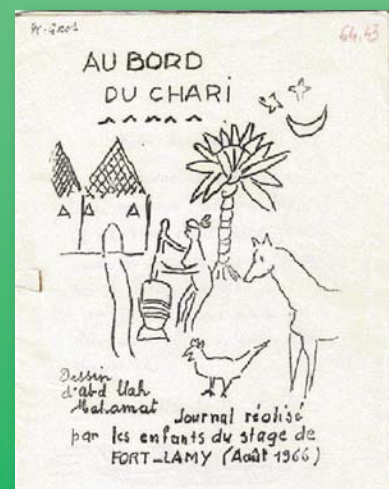 64.43
AU BORD
DU CHARI
Dessin
d'abd Ulah
Mahamat
Journal réalisé
par les enfants du stage de
FORT-LAMY (Août 1966)